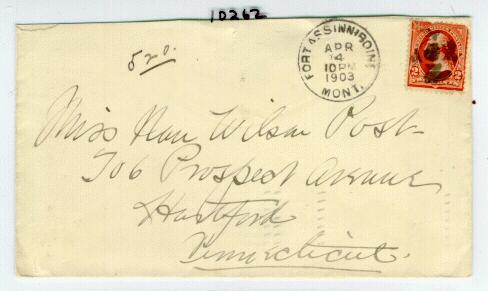 10262
5 20.
FORT ASSINNIBOINE
APR
4
10 PM
1903
MONT.
2 2
Miss Nan Wilson Post
706 Prospect Avenue
Hartford
Connecticut.